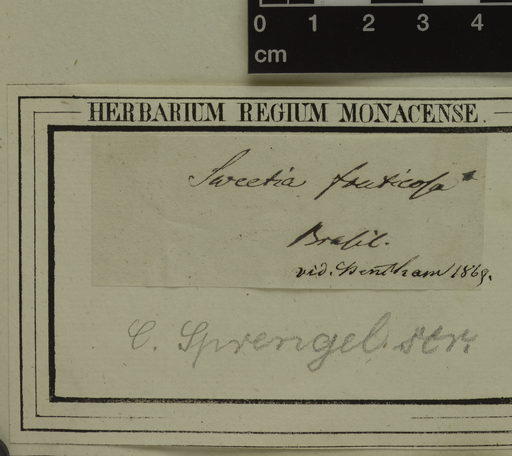 0 1 2 3 4
cm
HERBARIUM REGIUM MONACENSE.
Sweetia fruticosa
Brasil.
vid. Bentham 1869.
C. Sprengel. scr.